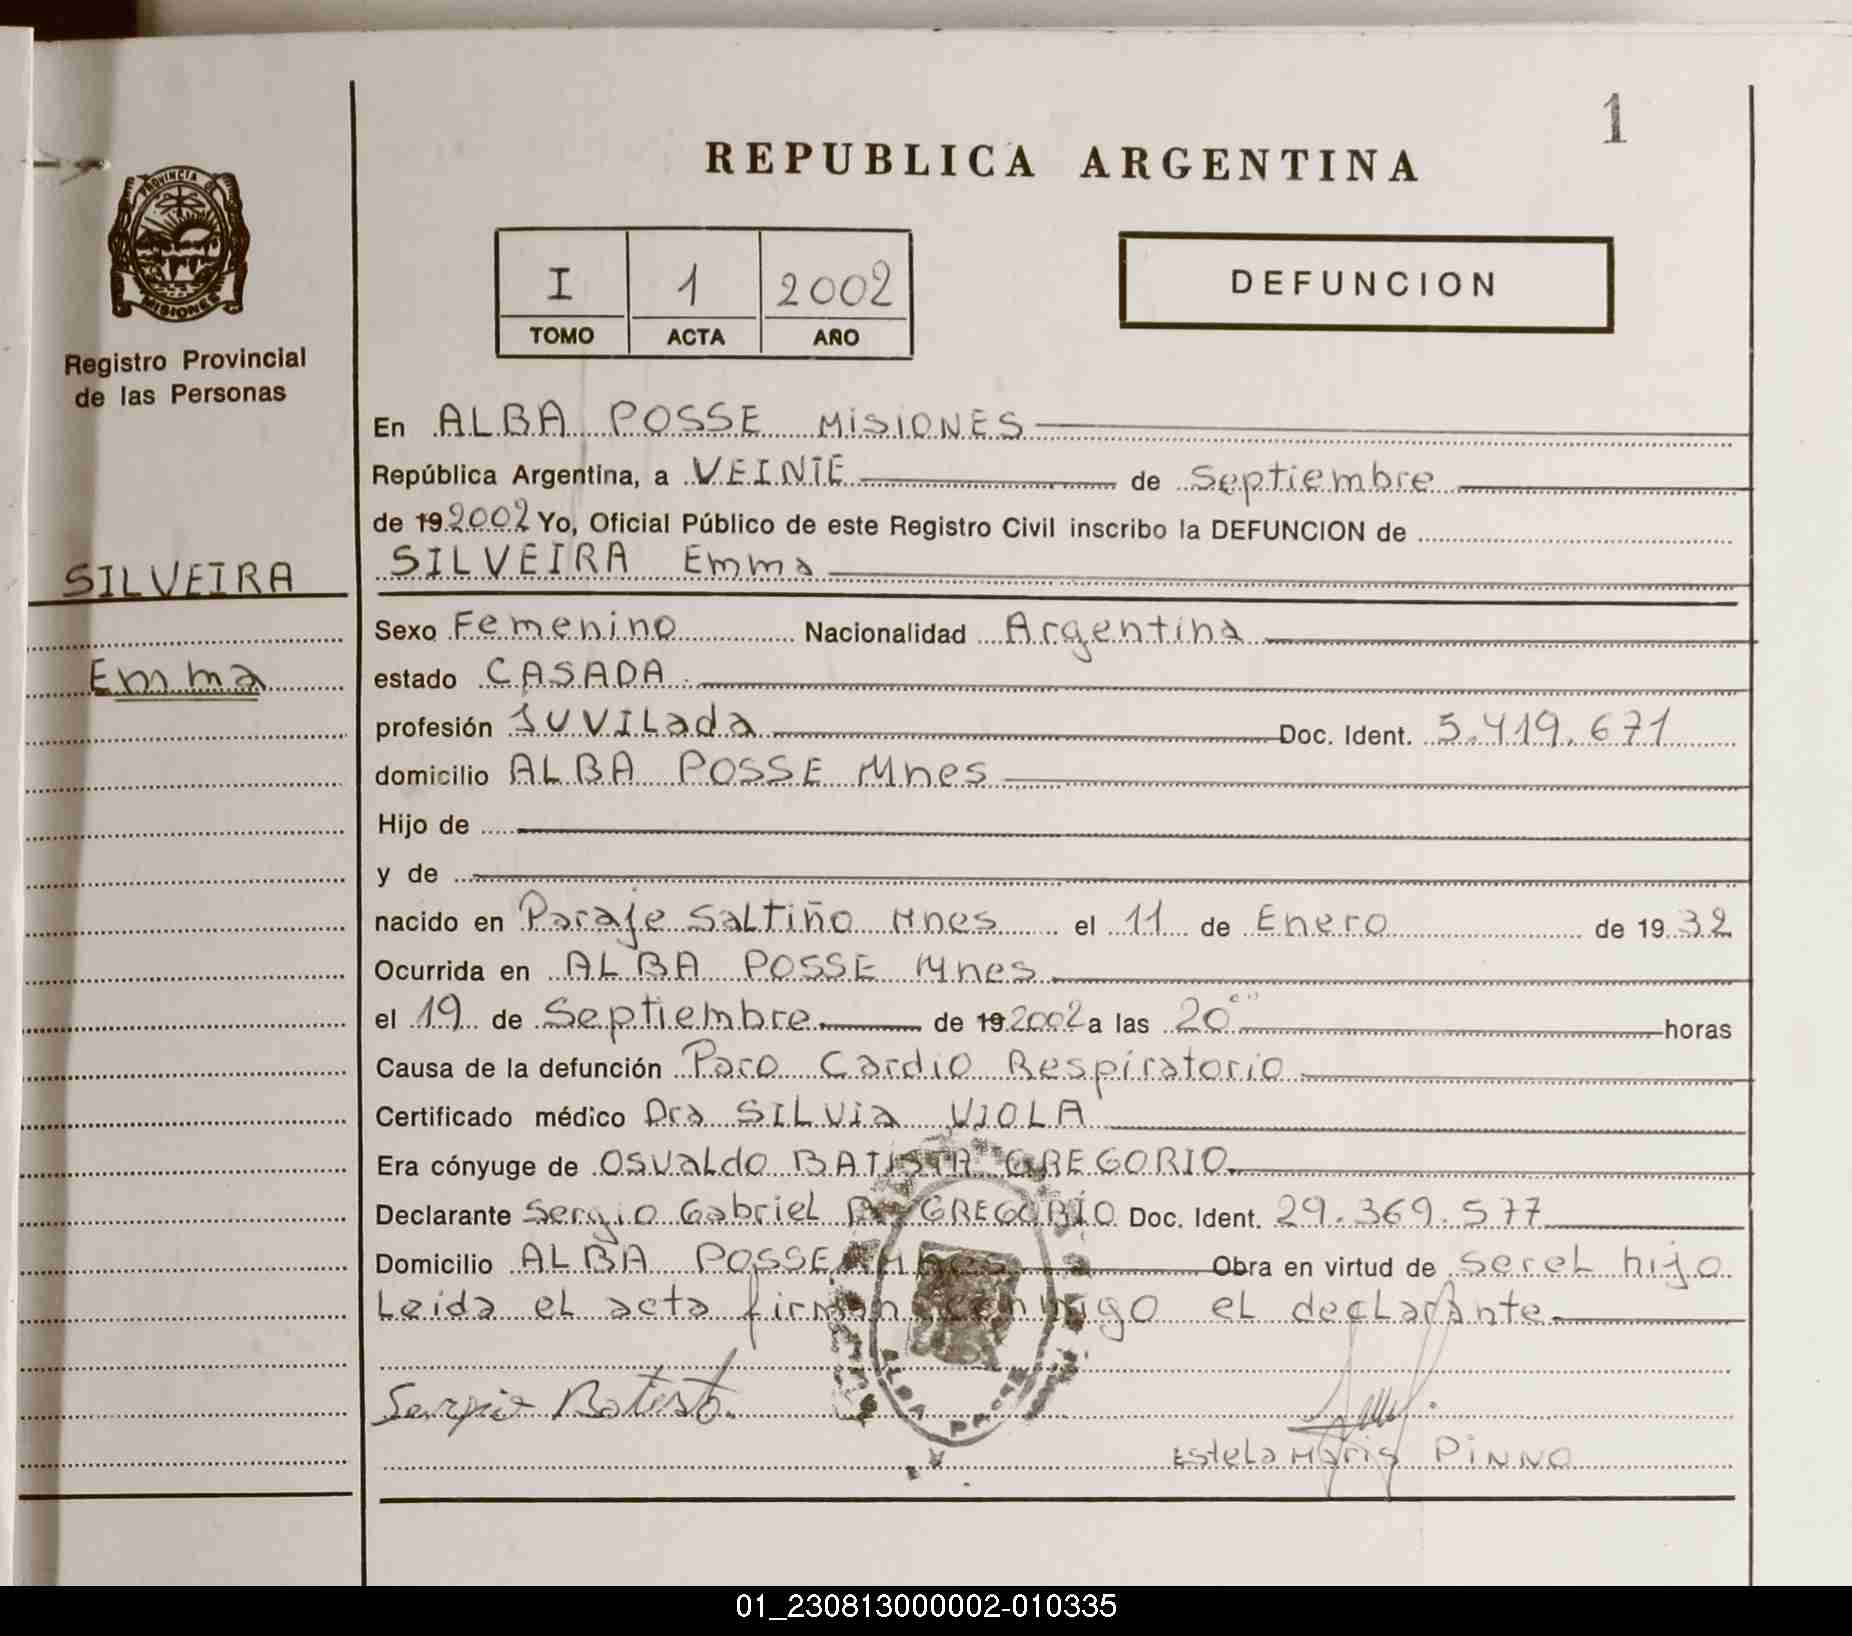 1
REPUBLICA ARGENTINA
PROVINCIA DE
MISIONES
Registro Provincial
de las Personas
I 1 2002
TOMO ACTA AÑO
DEFUNCION
SILVEIRA
Emma
En ALBA POSSE MISIONES
República Argentina, a VEINTE de Septiembre
de 19 2002 Yo, Oficial Público de este Registro Civil inscribo la DEFUNCION de
SILVEIRA Emma
Sexo Femenino Nacionalidad Argentina
estado CASADA.
profesión JUVILada Doc. Ident. 5.419.671
domicilio ALBA POSSE Mnes
Hijo de
y de
nacido en Paraje Saltiño Mnes el 11 de Enero de 1932
Ocurrida en ALBA POSSE Mnes
el 19 de Septiembre de 19 2002 a las 20 horas
Causa de la defunción Paro Cardio Respiratorio
Certificado médico Dra SILVia VIOLA
Era cónyuge de Osvaldo BATISTA GREGORIO
Declarante Sergio Gabriel GREGORIO Doc. Ident. 29.369.577
Domicilio ALBA POSSE Mnes Obra en virtud de ser el hijo
Leida el acta firman conmigo el declarante
Sergio Batista
Estela Maris PINNO
01_230813000002-010335